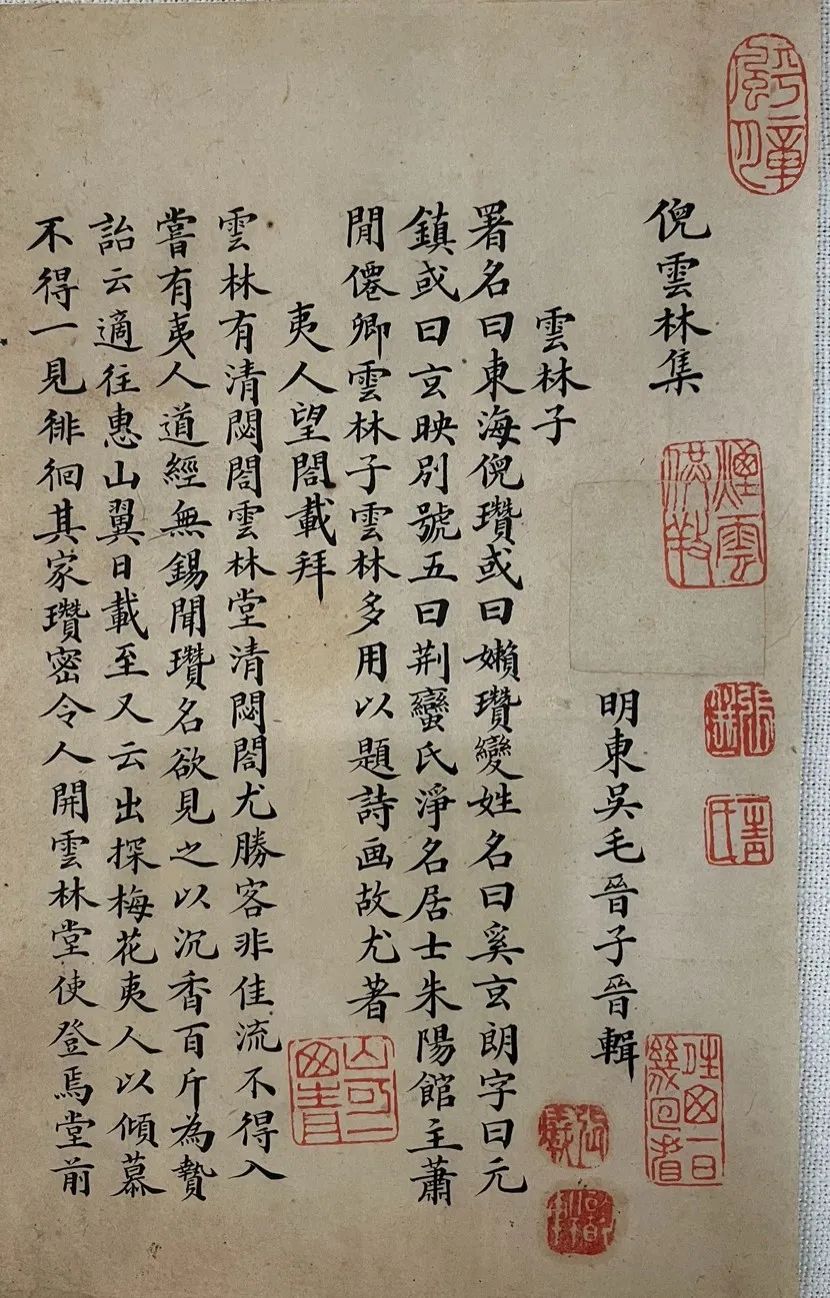 倪雲林集
明東吳毛晉子晉輯
雲林子
署名曰東海倪瓚或曰嬾瓚變姓名曰奚玄朗字曰元
鎮或曰玄映別號五曰荆蠻氏淨名居士朱陽館主蕭
閒僊卿雲林子雲林多用以題詩画故尤著
夷人望閣載拜
雲林有清閟閣雲林堂清閟閣尤勝客非佳流不得入
嘗有夷人道經無錫聞瓚名欲見之以沉香百斤為贄
詒云適往惠山翼日載至又云出探梅花夷人以傾慕
不得一見徘徊其家瓚密令人開雲林堂使登焉堂前
煙雲供養